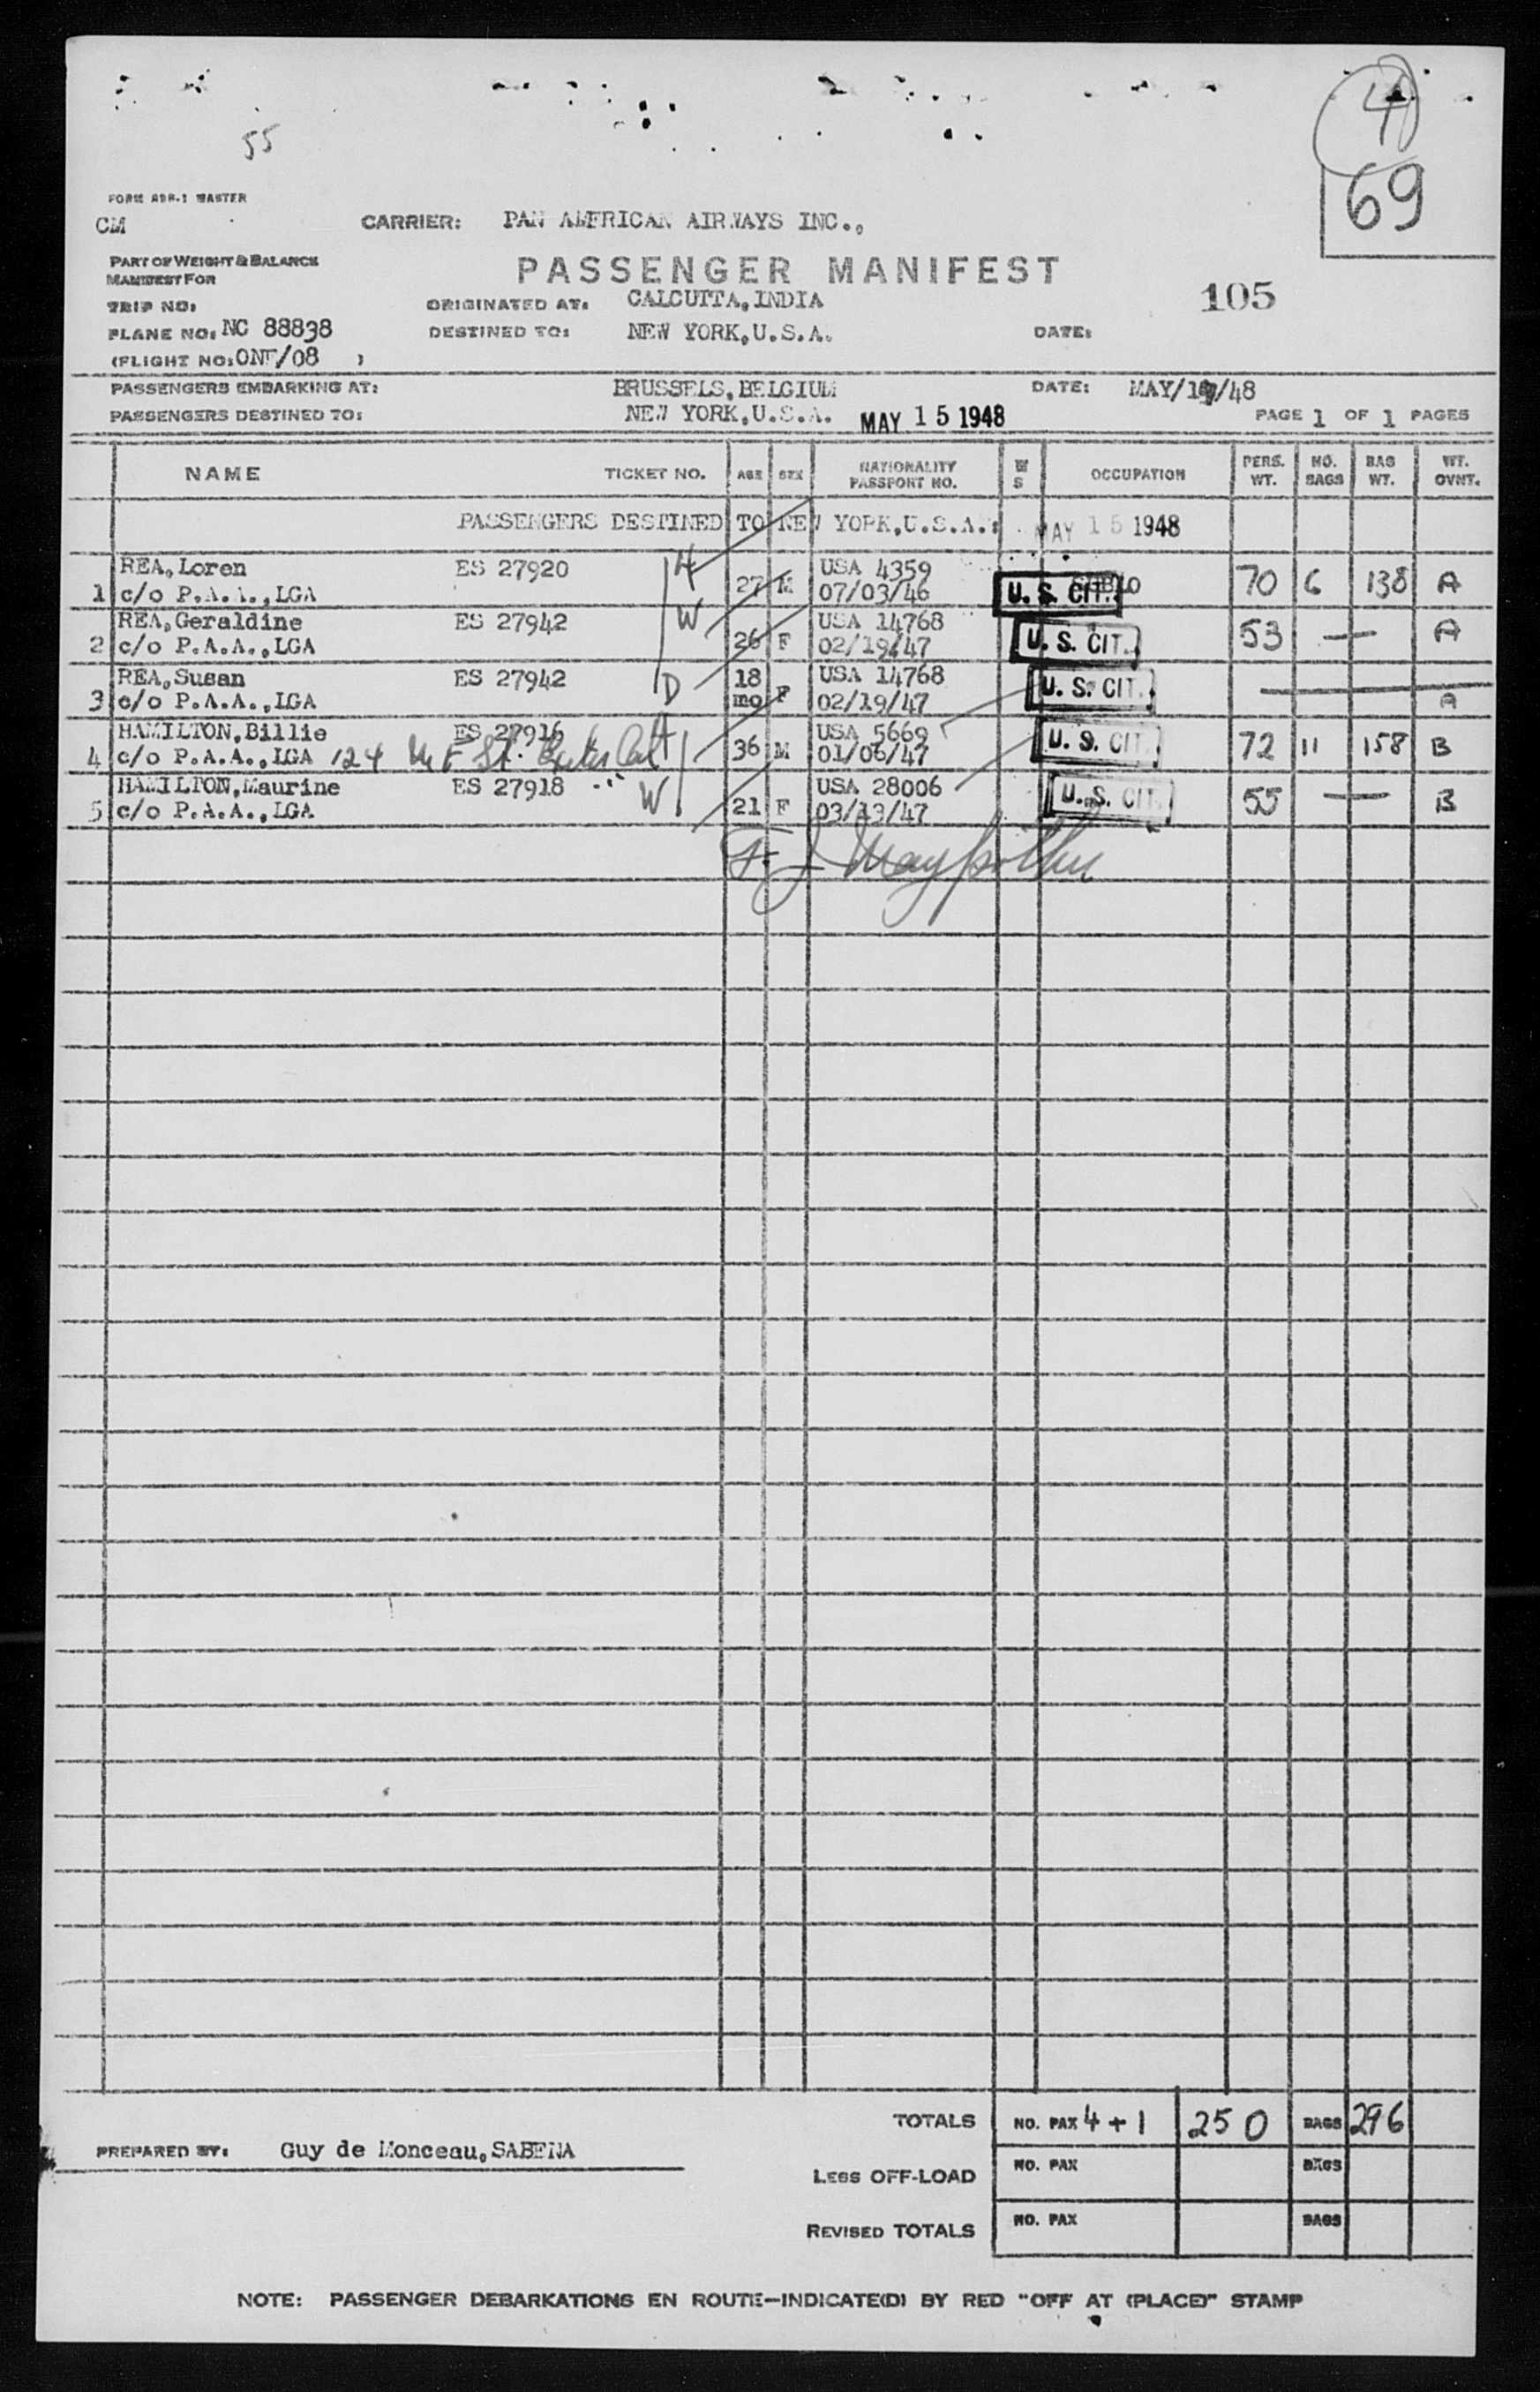 4
55
69
FORM ADB-1 MASTER
CM CARRIER: PAN AMERICAN AIRWAYS INC.,
PART OF WEIGHT & BALANCE
MANIFEST FOR
PASSENGER MANIFEST
105
TRIP NO: ORIGINATED AT: CALCUTTA, INDIA
PLANE NO: NC 88838 DESTINED TO: NEW YORK, U.S.A. DATE:
(FLIGHT NO: /08 )
PASSENGERS EMBARKING AT: BRUSSELS, BELGIUM DATE: MAY/ /48
PASSENGERS DESTINED TO: NEW YORK, U.S.A. MAY 15 1948 PAGE 1 OF 1 PAGES
NAME TICKET NO. AGE SEX NATIONALITY PASSPORT NO. W S OCCUPATION PERS. WT. NO. BAGS BAG WT. WT. OVNT.
PASSENGERS DESTINED TO NEW YORK, U.S.A.: MAY 15 1948
REA, Loren ES 27920 H USA 4359
1 c/o P.A.A., LGA 27 M 07/03/46 U. S. CIT. 70 6 138 A
REA, Geraldine ES 27942 W USA 14768
2 c/o P.A.A., LGA 26 F 02/19/47 U. S. CIT. 53 — A
REA, Susan ES 27942 D 18 USA 14768
3 c/o P.A.A., LGA mo F 02/19/47 U. S. CIT. — A
HAMILTON, Billie ES 27916 H USA 5669
4 c/o P.A.A., LGA 124 St. 36 M 01/06/47 U. S. CIT. 72 11 158 B
HAMILTON, Maurine ES 27918 W USA 28006
5 c/o P.A.A., LGA 21 F 03/13/47 U. S. CIT. 55 — B
TOTALS NO. PAX 4+1 250 BAGS 296
PREPARED BY: Guy de Monceau, SABENA
LESS OFF-LOAD NO. PAX BAGS
REVISED TOTALS NO. PAX BAGS
NOTE: PASSENGER DEBARKATIONS EN ROUTE—INDICATE(D) BY RED "OFF AT (PLACE)" STAMP